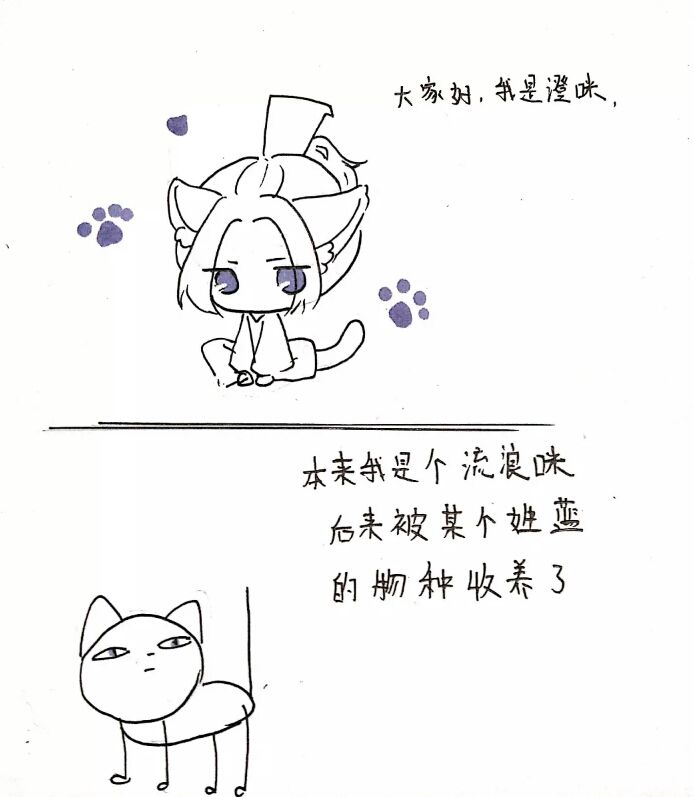 大家好，我是澄咪，
本来我是个流浪咪
后来被某个姓蓝
的物种收养了